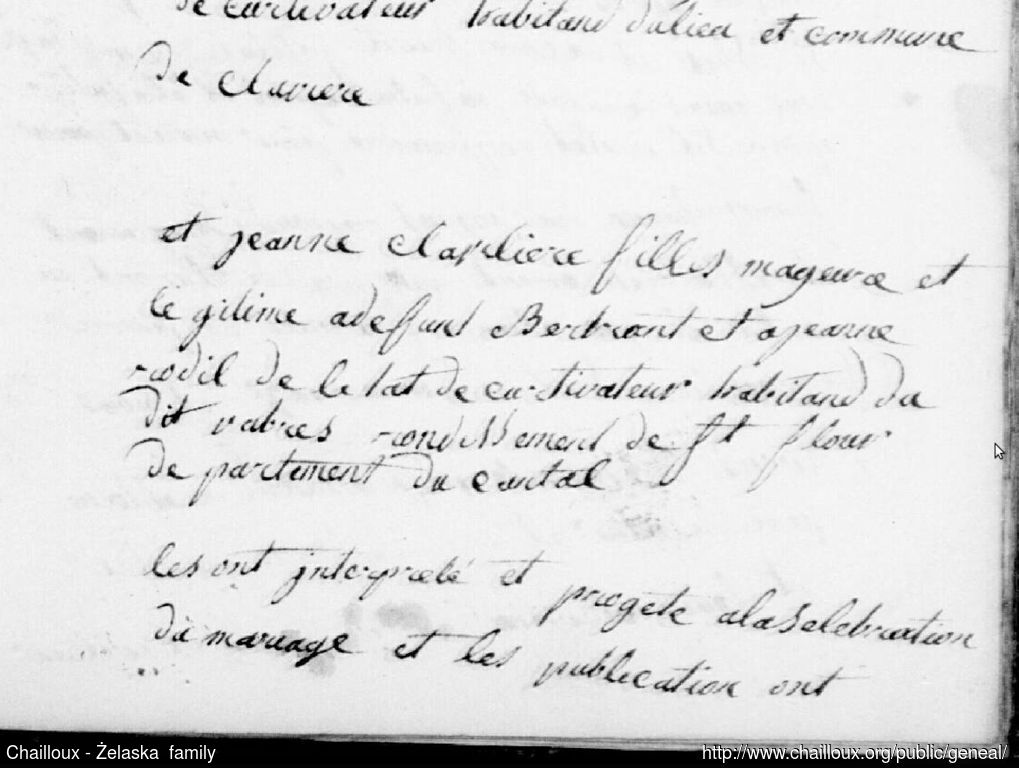 de cultivateur habitand dulieu et commune
de Claviere
et jeanne Clavliere filles mageure et
le gitime adeffunt Bertrant et ajeanne
rodil de le tat de cultivateur habitand du
dit vabres rondissement de St flour
de partement du cantal
les ont interpreté et progete alaSelebration
du mariage et les publication ont
Chailloux - Żelaska family
http://www.chailloux.org/public/geneal/